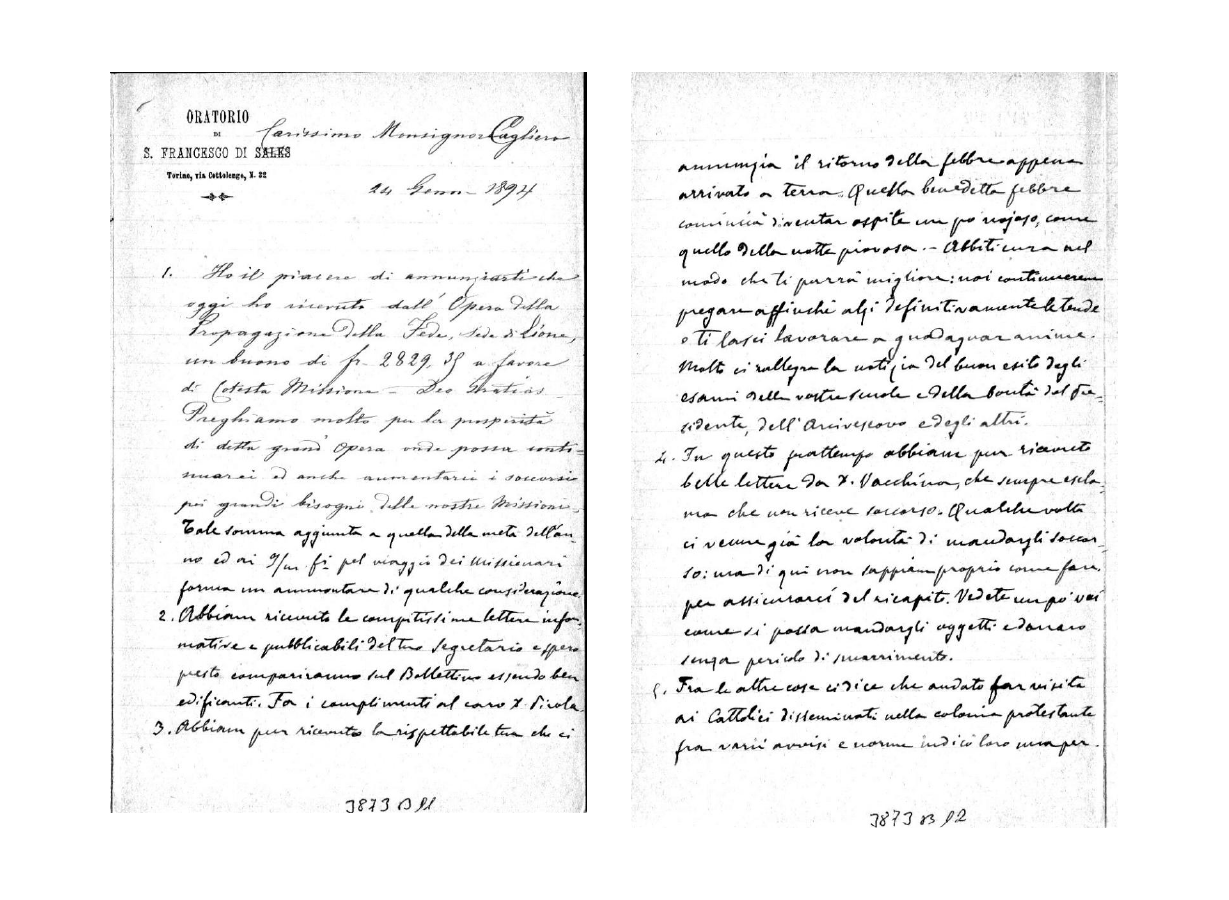 ORATORIO
DI
S. FRANCESCO DI SALES
Torino, via Cottolengo, N. 32
Carissimo Monsignor Cagliero
24 Genn- 1894
1. Ho il piacere di annunziarti che
oggi ho ricevuto dall' Opera della
Propagazione della Fede, sede di Lione,
un buono di fr. 2829, 35 a favore
di Cotesta Missione - Deo Gratias
Preghiamo molto per la prosperità
di detta grand' Opera onde possa conti-
nuarci ed anche aumentarci i soccorsi
pei grandi bisogni delle nostre Missioni.
Tale somma aggiunta a quella della metà dell'an-
no ed ai 9/m fr pel viaggio dei Missionari
forma un ammontare di qualche considerazione.
2. Abbiam ricevuto le compitissime lettere infor-
mative e pubblicabili del tuo segretario e spero
presto compariranno sul Bollettino essendo ben
edificanti. Fa i complimenti al caro D. Pirola
3. Abbiam pur ricevuto la rispettabile tua che ci
3873 B 11
annunzia il ritorno della febbre appena
arrivato a terra. Questa benedetta febbre
comincia diventar ospite un po' nojoso, come
quello della notte piovosa. - Abbiti cura nel
modo che ti parrà migliore: noi continueremo
pregare affinchè alzi definitivamente le tende
o ti lasci lavorare a guadagnar anime.
Molto ci rallegra la notizia del buon esito degli
esami delle vostre scuole e della bontà del Pre-
sidente, dell' Arcivescovo e degli altri.
4. In questo frattempo abbiam pur ricevuto
belle lettere da D. Vacchina, che sempre escla-
ma che non riceve soccorso. Qualche volta
ci venne già la volontà di mandargli soccor-
so: ma di qui non sappiam proprio come fare
per assicurarci del ricapito. Vedete un po' voi
come si possa mandargli oggetti e danaro
senza pericolo di smarrimento.
5. Fra le altre cose ci dice che andato far visita
ai Cattolici disseminati nella colonia protestante
fra varii avvisi e norme indicò loro una per-
3873 B 12